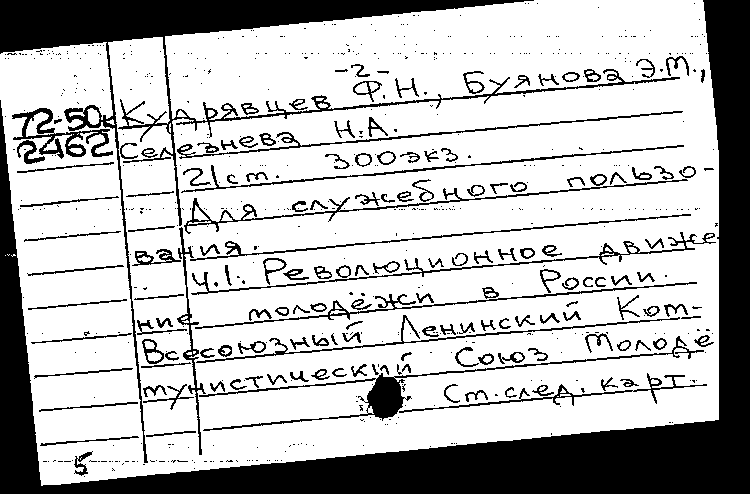 -2-
72-50к Кудрявцев Ф.Н., Буянова Э.М.,
2462 Селезнева Н.А.
21 см. 300 экз.
Для служебного пользо-
вания.
Ч.1. Революционное движе
ние молодёжи в России.
Всесоюзный Ленинский Ком-
мунистический Союз Молодё
См. след. карт.
5